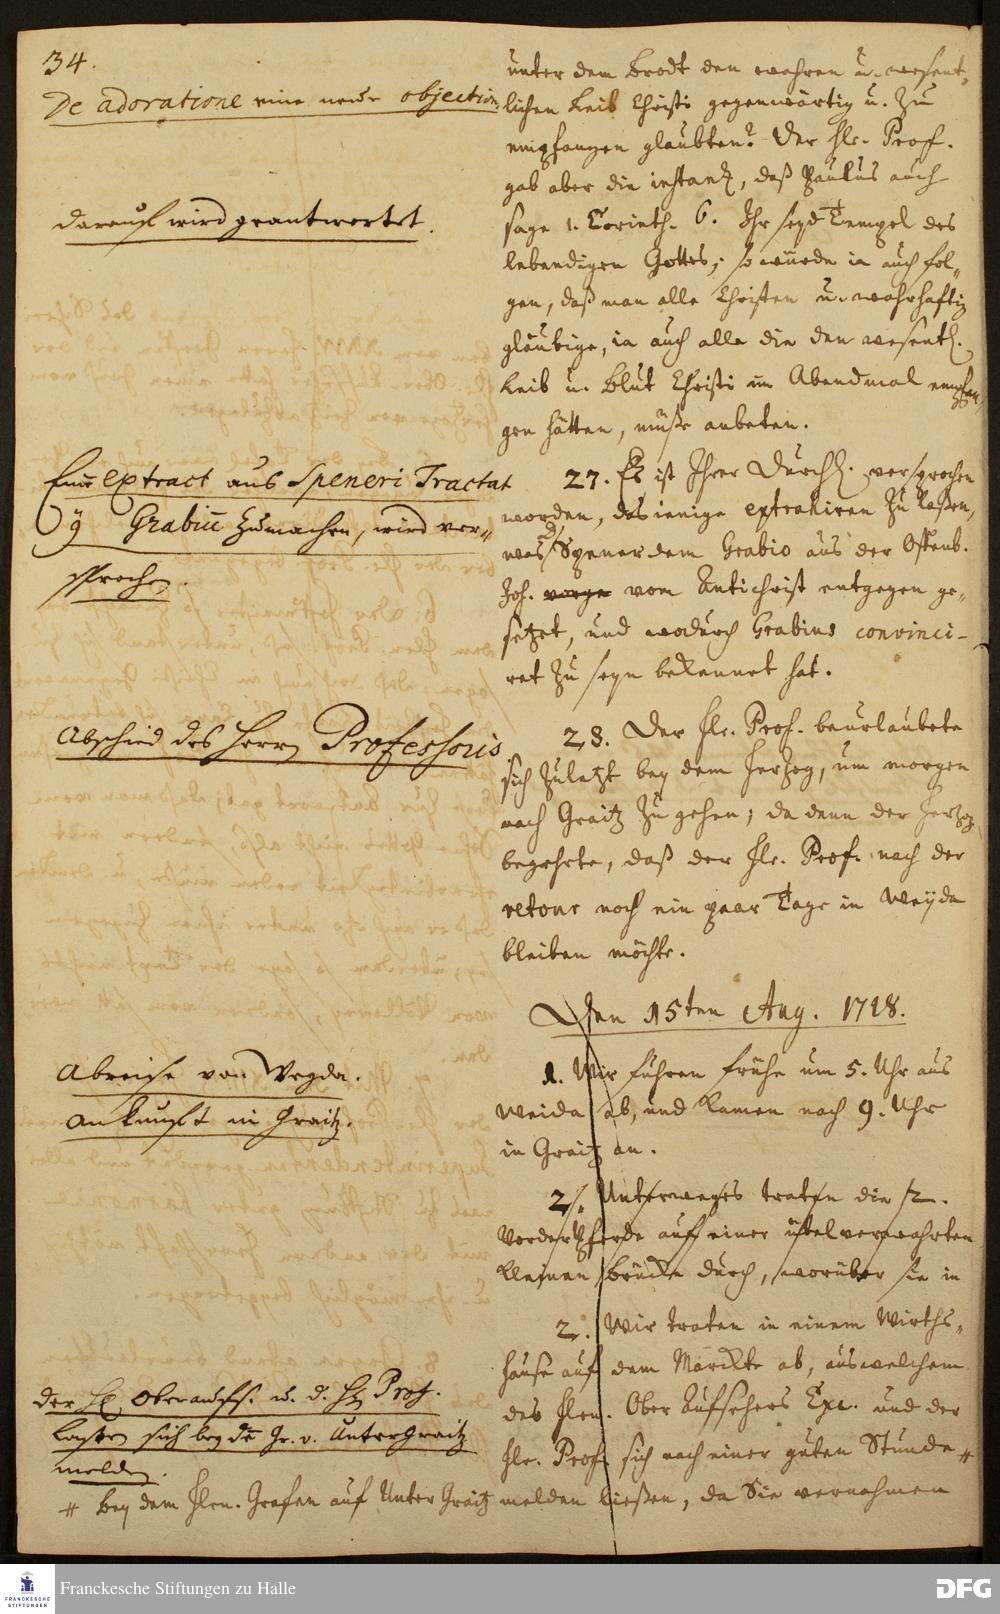 34.
De adoratione eine neue objection.
unter dem Brodt den wahren u. wesent„
lichen Leib Christi gegenwärtig u. zu
empfangen glaubten? Der Hr. Prof.
gab aber die instanz, daß Paulus auch
darauf wird geantwortet.
sage 1. Corinth. 6. Ihr seyd Tempel des
lebendigen Gottes; so würde ia auch fol„
gen, daß man alle Christen u. wahrhaftig
gläubige, ia auch alle die den wesentl.
Leib u. Blut Christi im Abendmal empfan„
gen hätten, müße anbeten.
Einē extract aus Speneri Tractat
Grabiū zumachen, wird ver„
sprochen.
27. Es ist Ihrer Durchl. versprochen
worden, dasienige extrahiren zu laßen,
was Spener dem Grabio aus der Offenb.
Joh. vom Antichrist entgegen ge„
setzet, und wodurch Grabius convinci-
ret zu seyn bekennet hat.
Abschied des Herrn Professoris
28. Der Hr. Prof. beurlaubete
sich zuletzt bey dem Herzog, um morgen
nach Graitz zu gehen; da denn der Herzog
begehrte, daß der Hr. Prof. nach der
retour noch ein paar Tage in Weyda
bleiben möchte.
Den 15ten Aug. 1718.
Abreise von Weyda.
Ankunfft in Graitz.
1. Wir fuhren frühe um 5. Uhr aus
Weida ab, und kamen nach 9. Uhr
in Graitz an.
2. Unterweges traten die 2.
Vorder Pferde auf einer übel verwahrten
kleinen Brücke durch, worüber sie in
2. Wir traten in einem Wirths„
hause auf dem Marckte ab, aus welchem
des Hrn. Ober Aufsehers Exc. und der
Hr. Prof. sich nach einer guten Stunde #
melden ließen, da Sie vernahmen
der H. Oberaufs. u. d. H. Prof.
laßen sich bey dē Gr. v. Untergraitz
melden.
# bey dem Hrn. Grafen auf Unter Graitz
Franckesche Stiftungen zu Halle
FRANCKESCHE
STIFTUNGEN
DFG